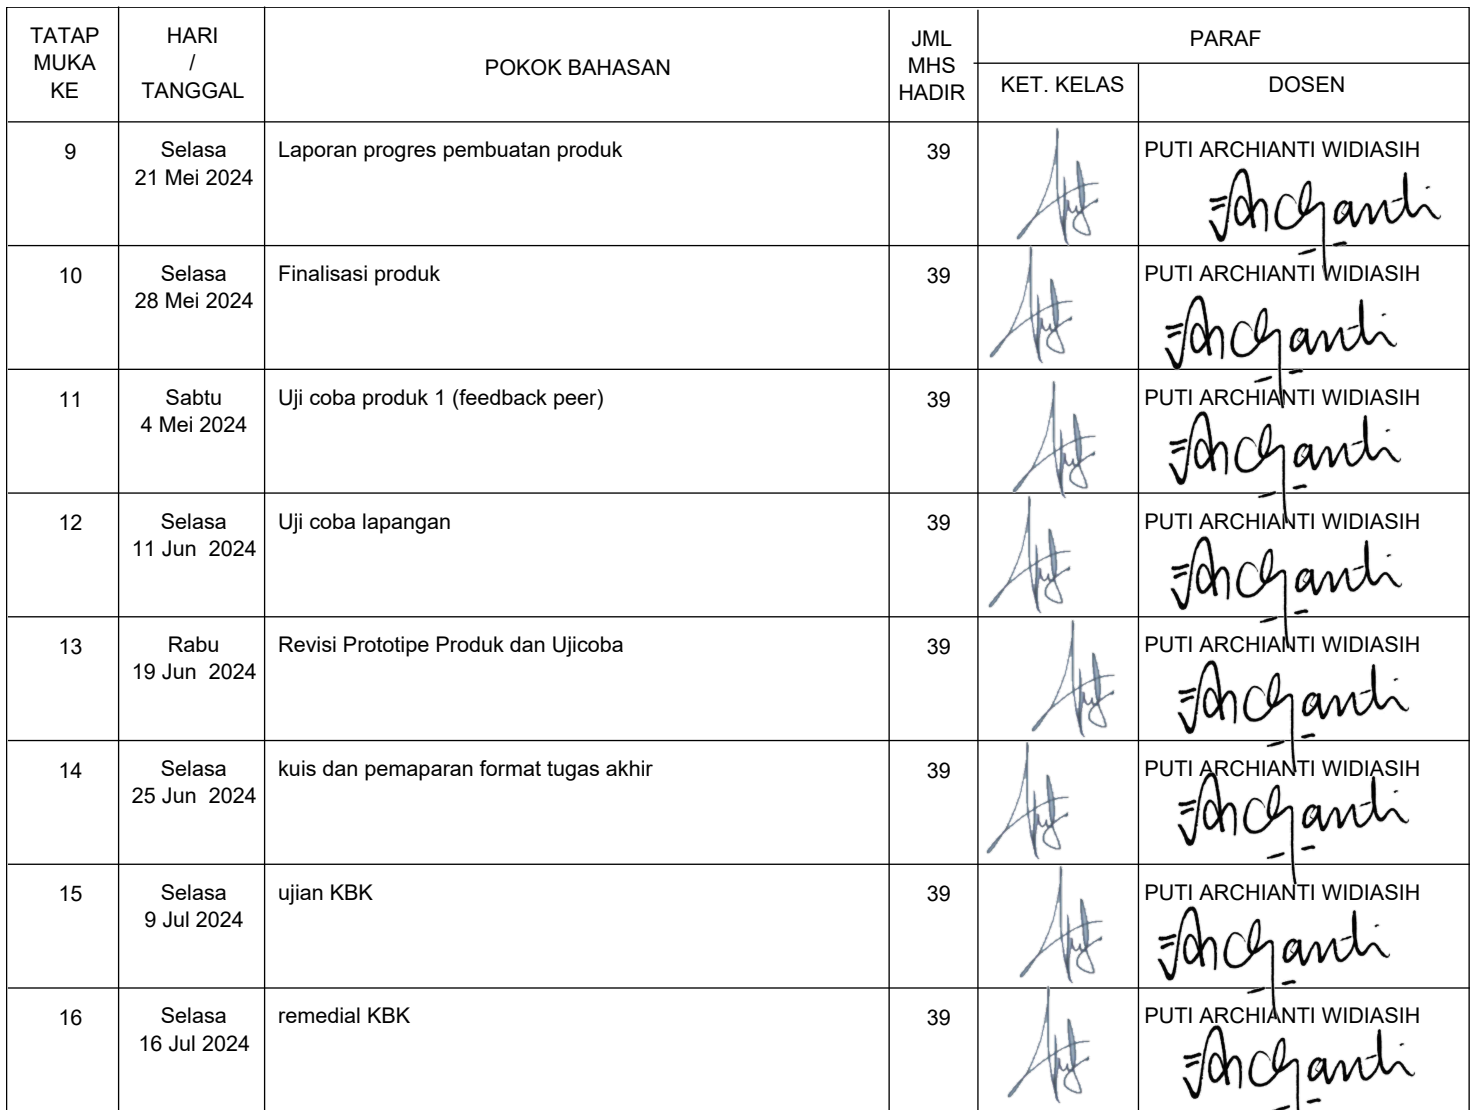 TATAP
MUKA
KE
HARI
/
TANGGAL
POKOK BAHASAN
JML
MHS
HADIR
PARAF
KET. KELAS
DOSEN
9
Selasa
21 Mei 2024
Laporan progres pembuatan produk
39
PUTI ARCHIANTI WIDIASIH
10
Selasa
28 Mei 2024
Finalisasi produk
39
PUTI ARCHIANTI WIDIASIH
11
Sabtu
4 Mei 2024
Uji coba produk 1 (feedback peer)
39
PUTI ARCHIANTI WIDIASIH
12
Selasa
11 Jun  2024
Uji coba lapangan
39
PUTI ARCHIANTI WIDIASIH
13
Rabu
19 Jun  2024
Revisi Prototipe Produk dan Ujicoba
39
PUTI ARCHIANTI WIDIASIH
14
Selasa
25 Jun  2024
kuis dan pemaparan format tugas akhir
39
PUTI ARCHIANTI WIDIASIH
15
Selasa
9 Jul 2024
ujian KBK
39
PUTI ARCHIANTI WIDIASIH
16
Selasa
16 Jul 2024
remedial KBK
39
PUTI ARCHIANTI WIDIASIH